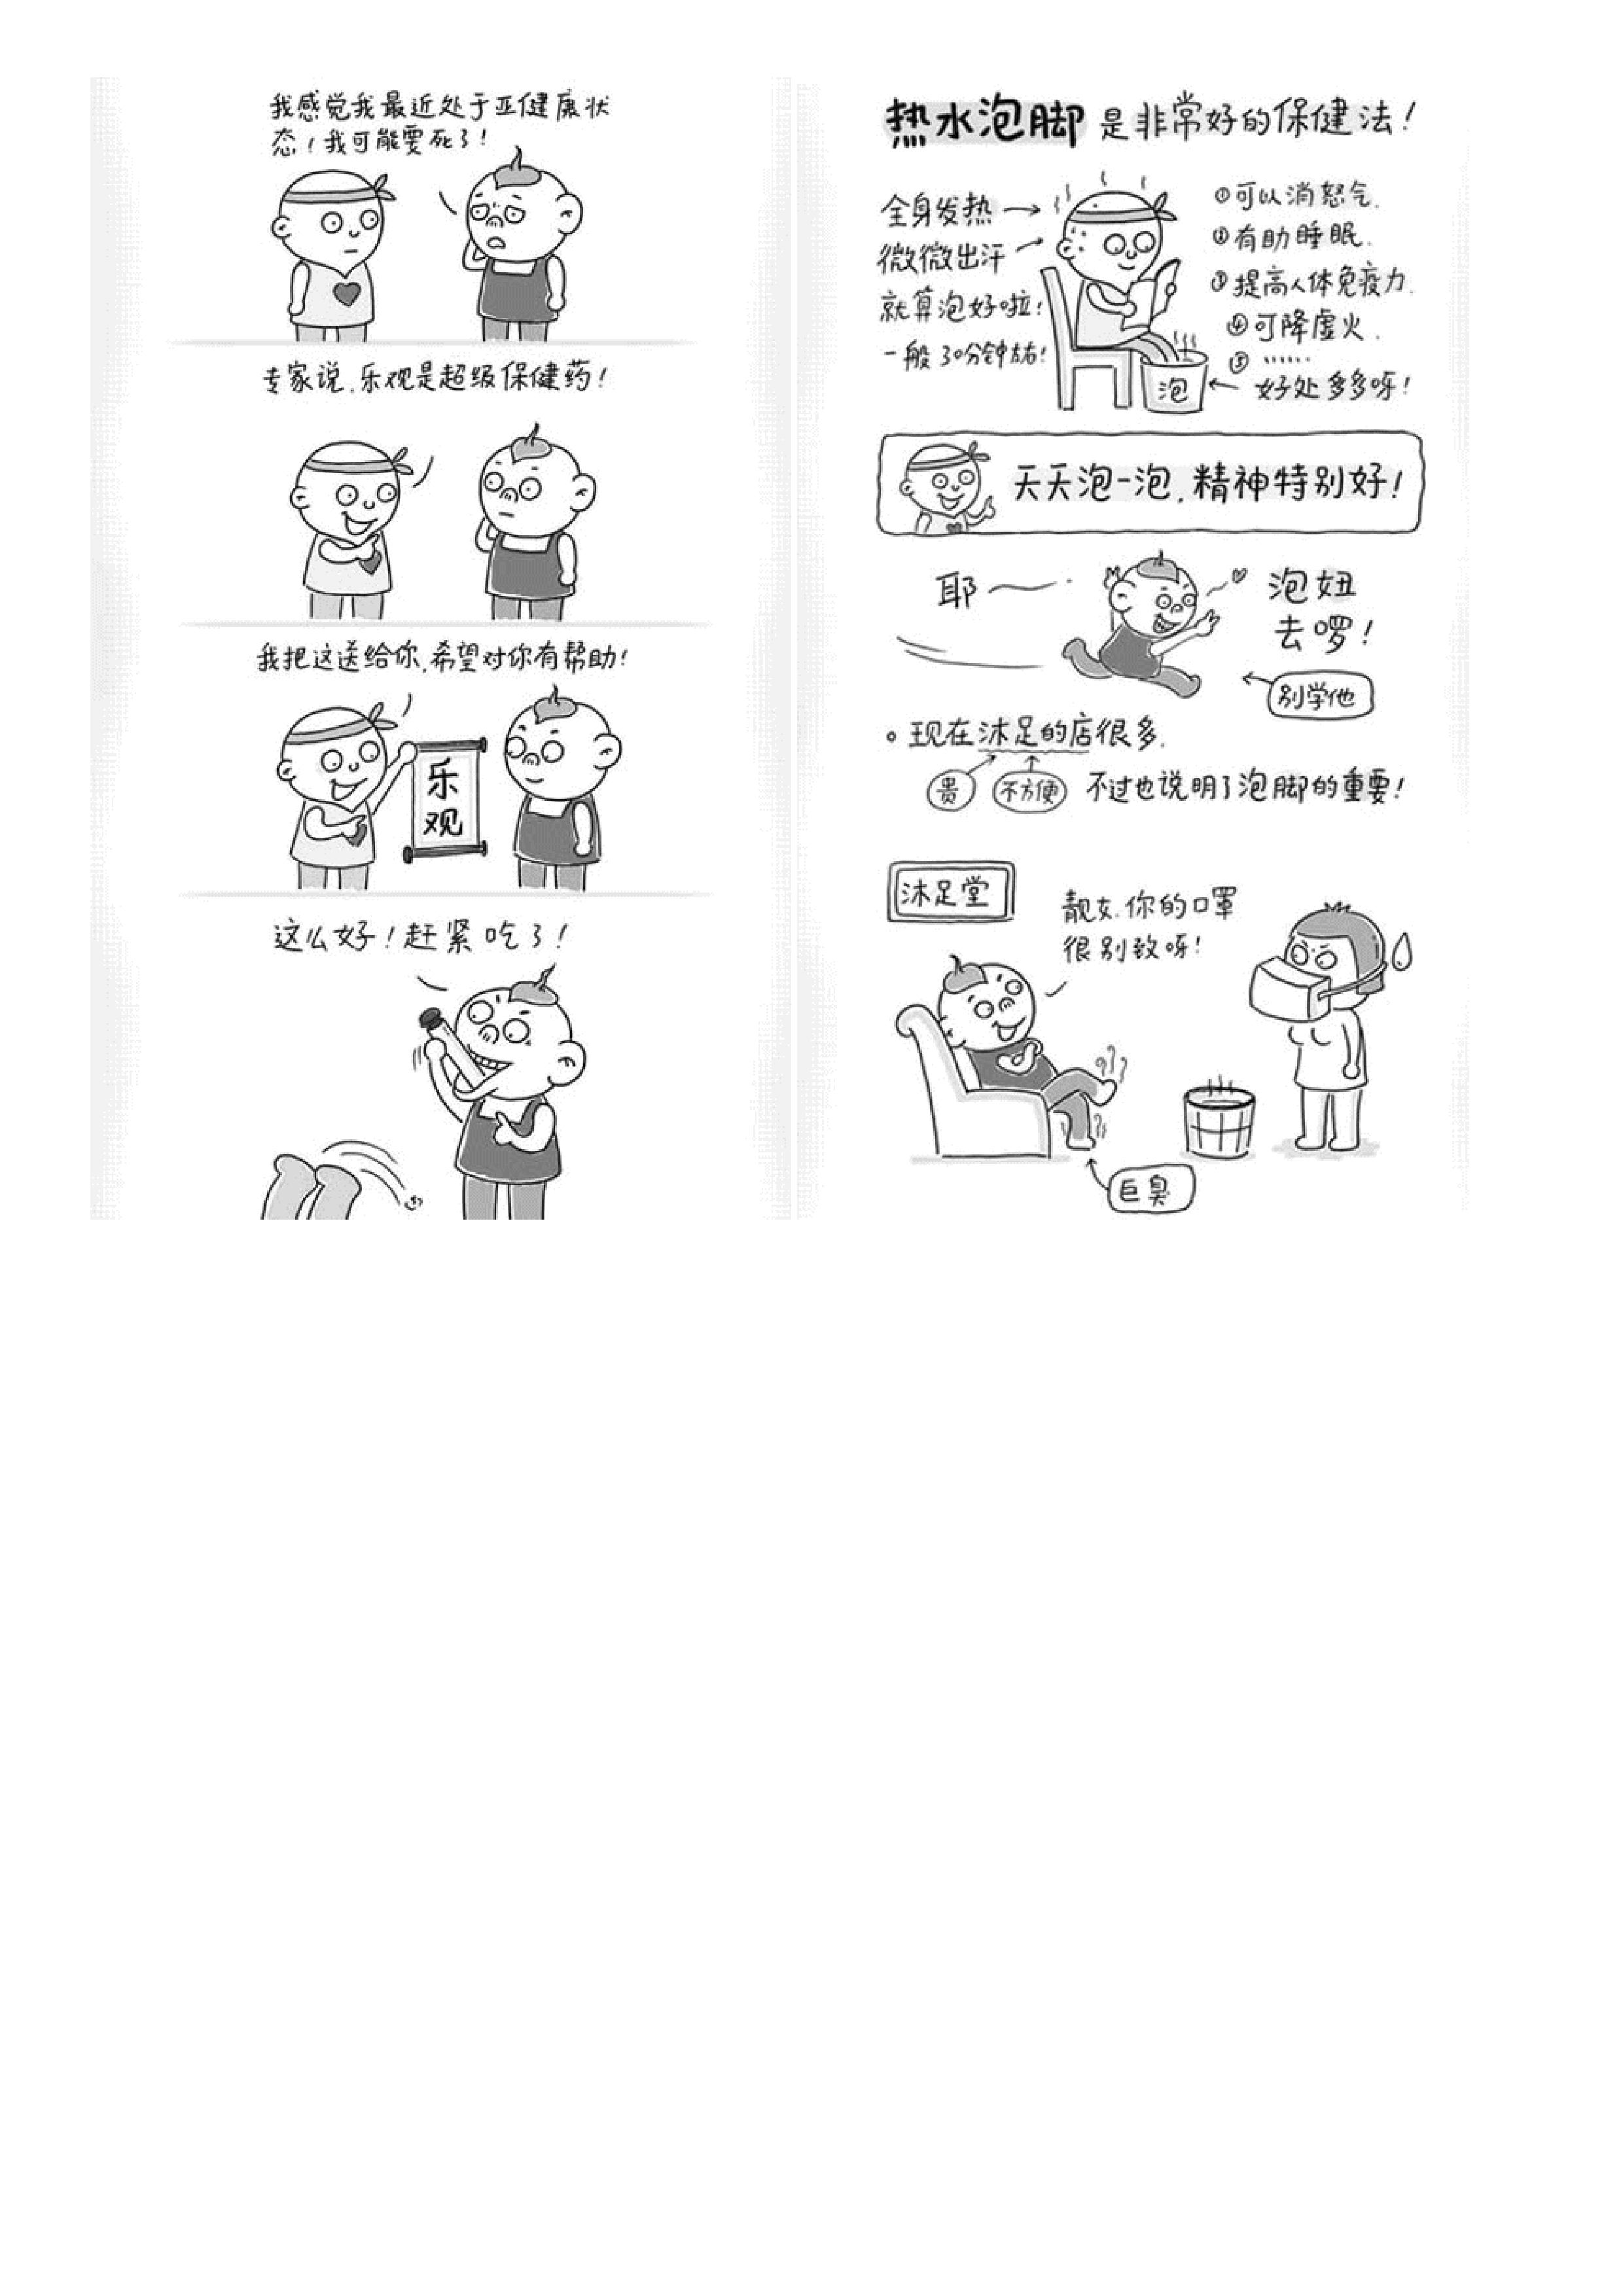 我感觉我最近处于亚健康状
态！我可能要死了！
专家说，乐观是超级保健药！
我把这送给你，希望对你有帮助！
乐
观
这么好！赶紧吃了！
热水泡脚是非常好的保健法！
全身发热
微微出汗
就算泡好啦！
一般30分钟左右！
①可以消怒气．
②有助睡眠．
③提高人体免疫力．
④可降虚火．
⑤……
好处多多呀！
泡
天天泡一泡，精神特别好！
耶
泡妞
去啰！
别学他
。现在沐足的店很多．
贵
不方便
不过也说明了泡脚的重要！
沐足堂
靓女，你的口罩
很别致呀！
巨臭